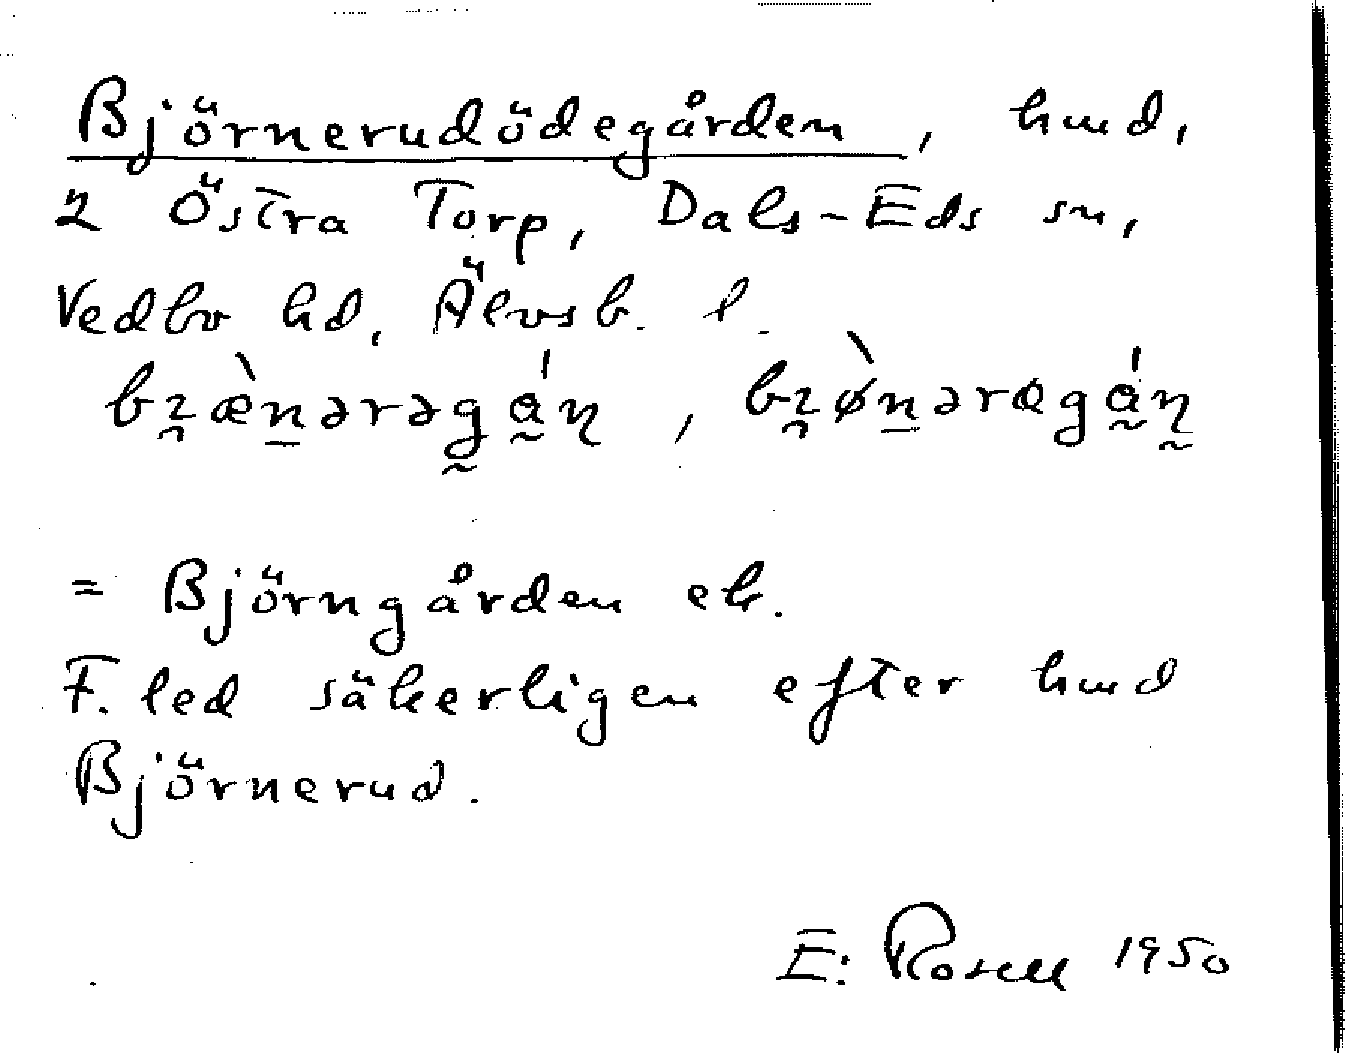 Björnerudödegården, hmd,
2 Östra Torp, Dals-Eds sn,
Vedbo hd, Älvsb. l.
= Björngården ek.
F. led säkerligen efter hmd
Björnerud.
E. Rosell 1950